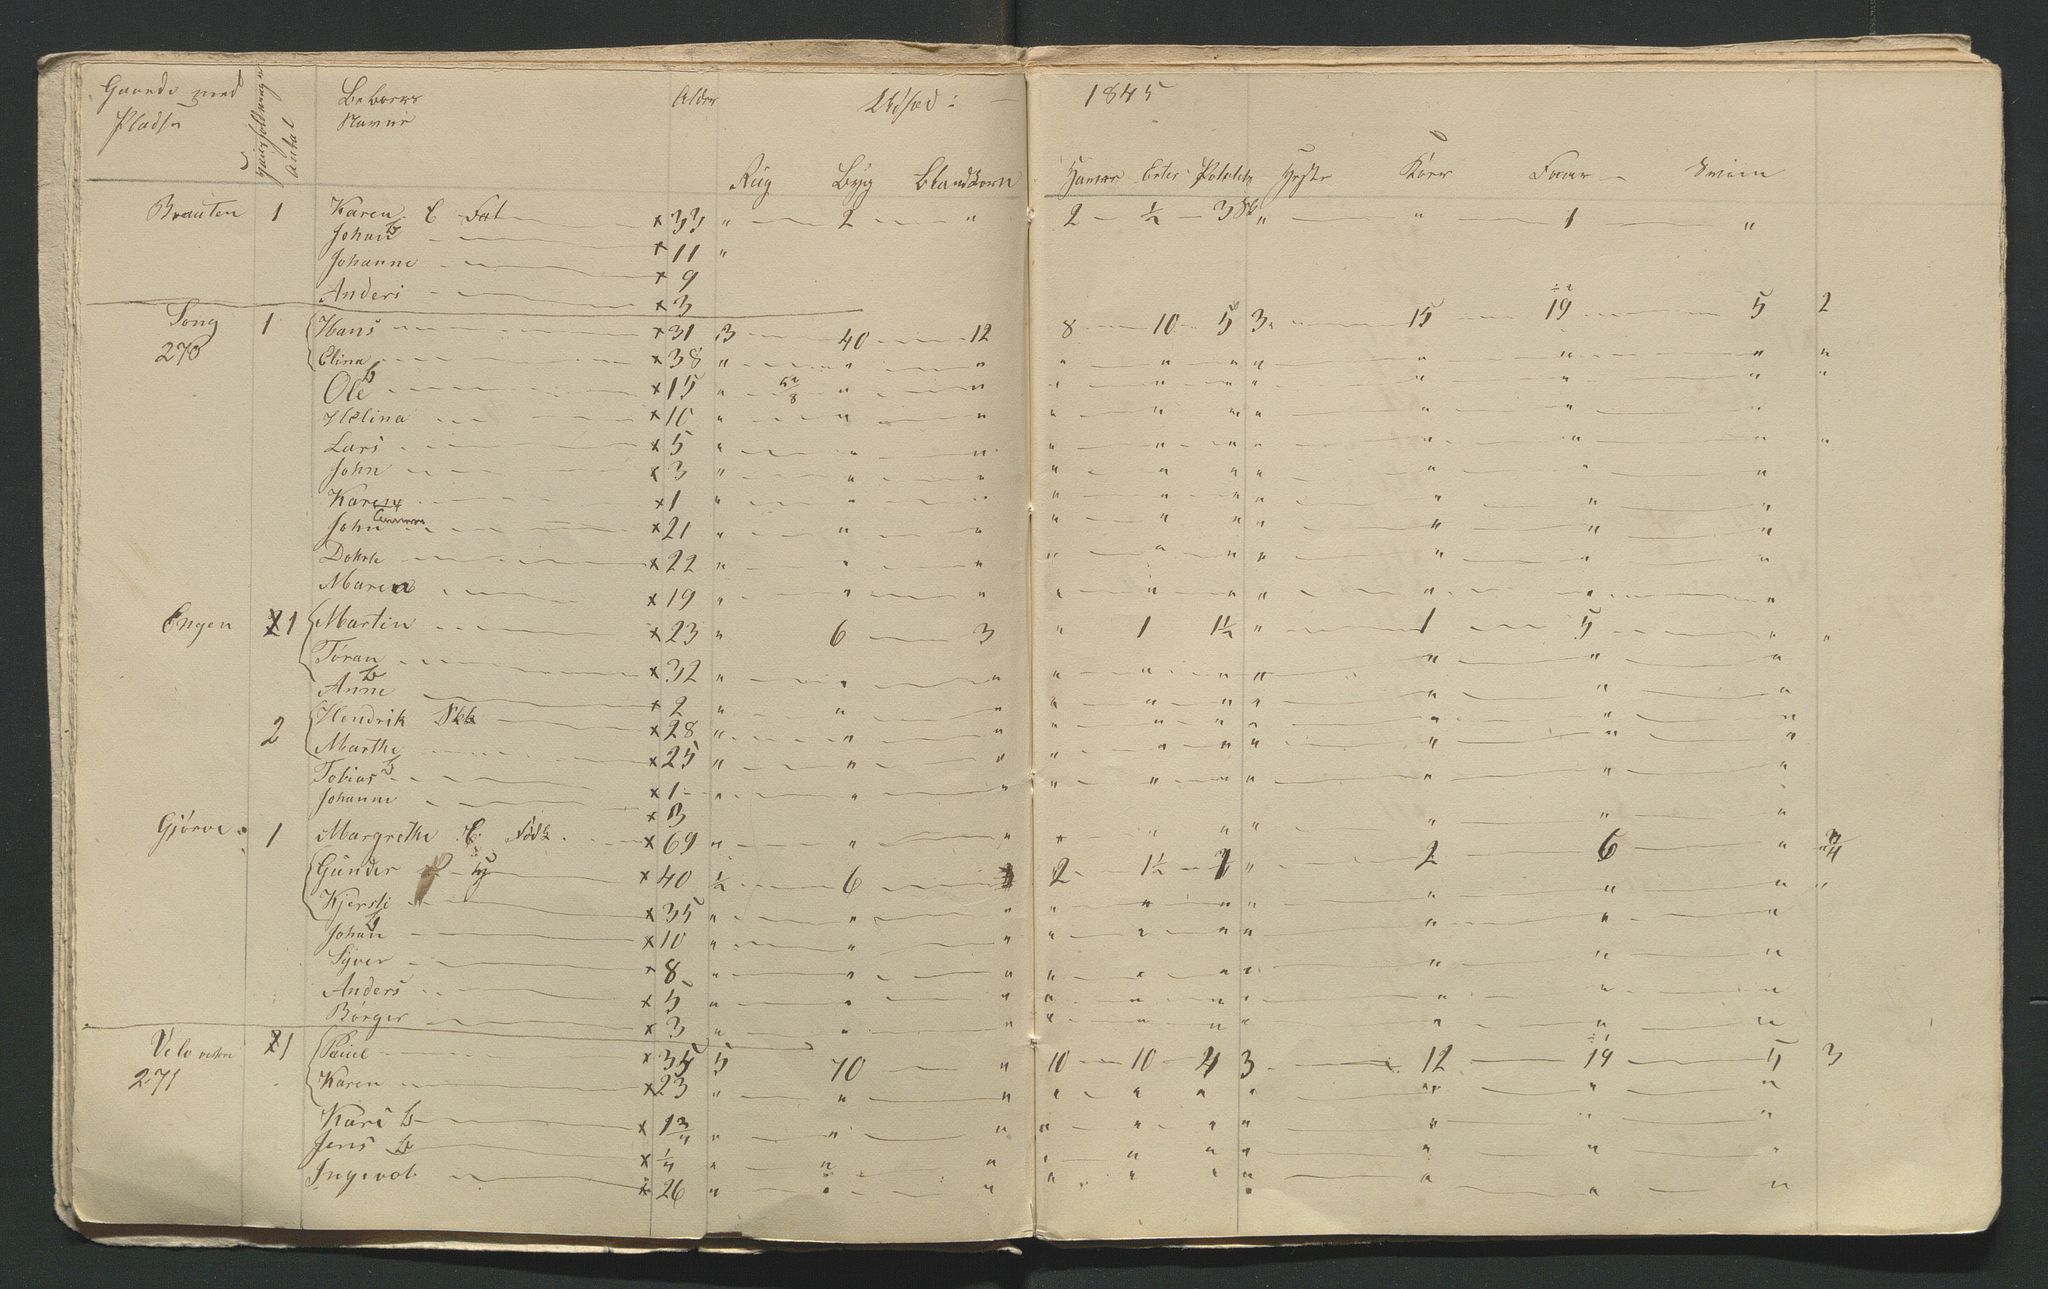 Gaarde med Pladse Huusholdningers Antal Beboers Navne Alder Udsæd: 1845
Rug Byg Blandkorn Havre Erter Poteter Heste Kører Faar Sviin
Brauten 1 Karen E Fat x 33 " 2 " 2 ½ 3 " " 1 "
Johan x 11 "
Johanne x 9
Anders x 3
Song 270 1 Hans x 31 3 40 12 8 10 5 3 15 19 5 2
Elina x 38 " " " " " " " " " " "
Ole x 15 " " " " " " " " " " "
Helina x 10 " " " " " " " " " "
Lars x 5 " " " " " " " " " " "
John x 3 " " " " " " " " " "
Karen x 1 " " " " " " " " " "
John x 21 " " " " " " " " " "
Dorte x 22 " " " " " " " " " "
Maren x 19 " " " " " " " " " "
Engen 1 Martin x 23 " 6 3 " 1 1½ " 1 5 " "
Tøran x 32 " " " " " " " " " "
Anne x 2 " " " " " " " " " "
2 Hendrik x 28 " " " " " " " " " "
Marthe x 25 " " " " " " " " " "
Tobias x 1 " " " " " " " " " "
Johanne x 3
Gjørve 1 Margrethe E Fødr x 69 " " " " " " " " " "
Gunder x 40 ½ 6 2 1½ 1 " 2 6 " 4
Kjersti x 35 " " " " " " " " " " "
Johan x 10 " " " " " " " " " "
Syver x 8 " " " " " " " " " "
Anders x 5 " " " " " " " " " "
Børger x 3 " " " " " " " " " "
Velo vestre 271 1 Povel x 35 5 70 " 10 10 4 3 12 19 5 3
Karen x 23 " " " " " " " " " "
Kari x 13 " " " " " " " " " "
Jens x ¼ " " " " " " " " " "
Ingevol x 26 " " " " " " " " " "